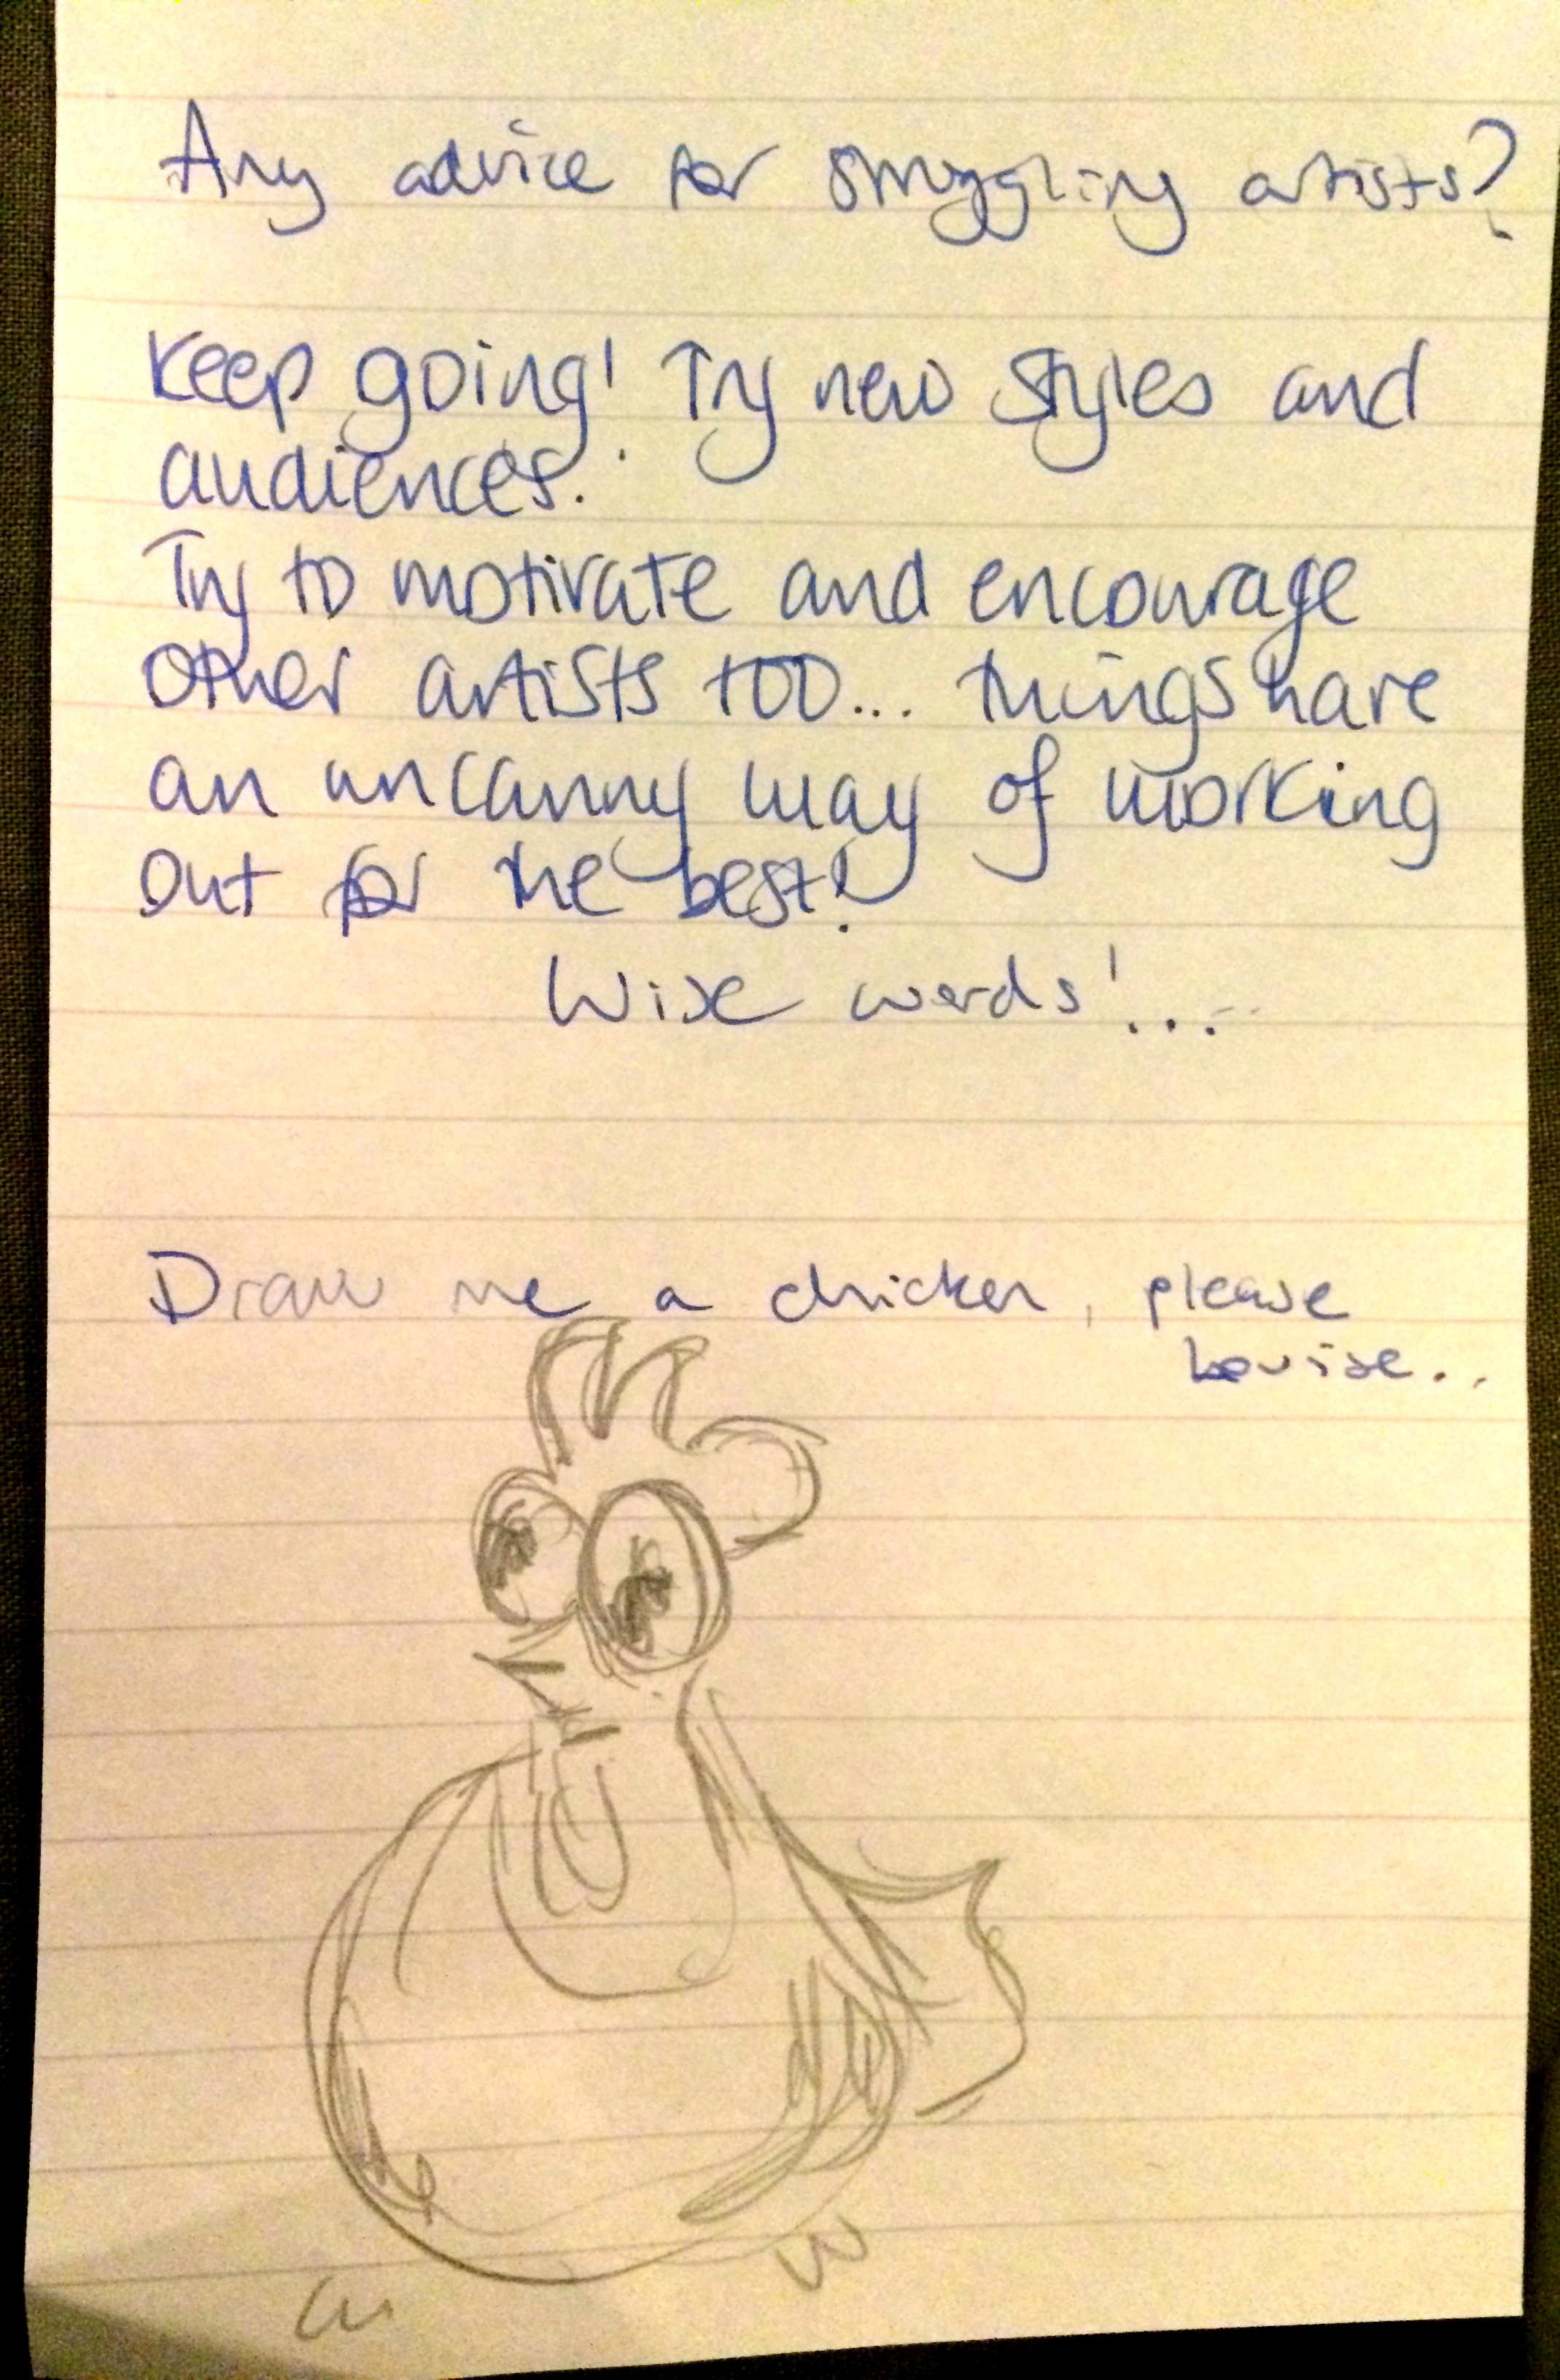 Any advice for struggling artists?
Keep going! Try new styles and
audiences.
Try to motivate and encourage
other artists too... things have
an uncanny way of working
out for the best!
Wise words!...
Draw me a chicken, please
Louise..